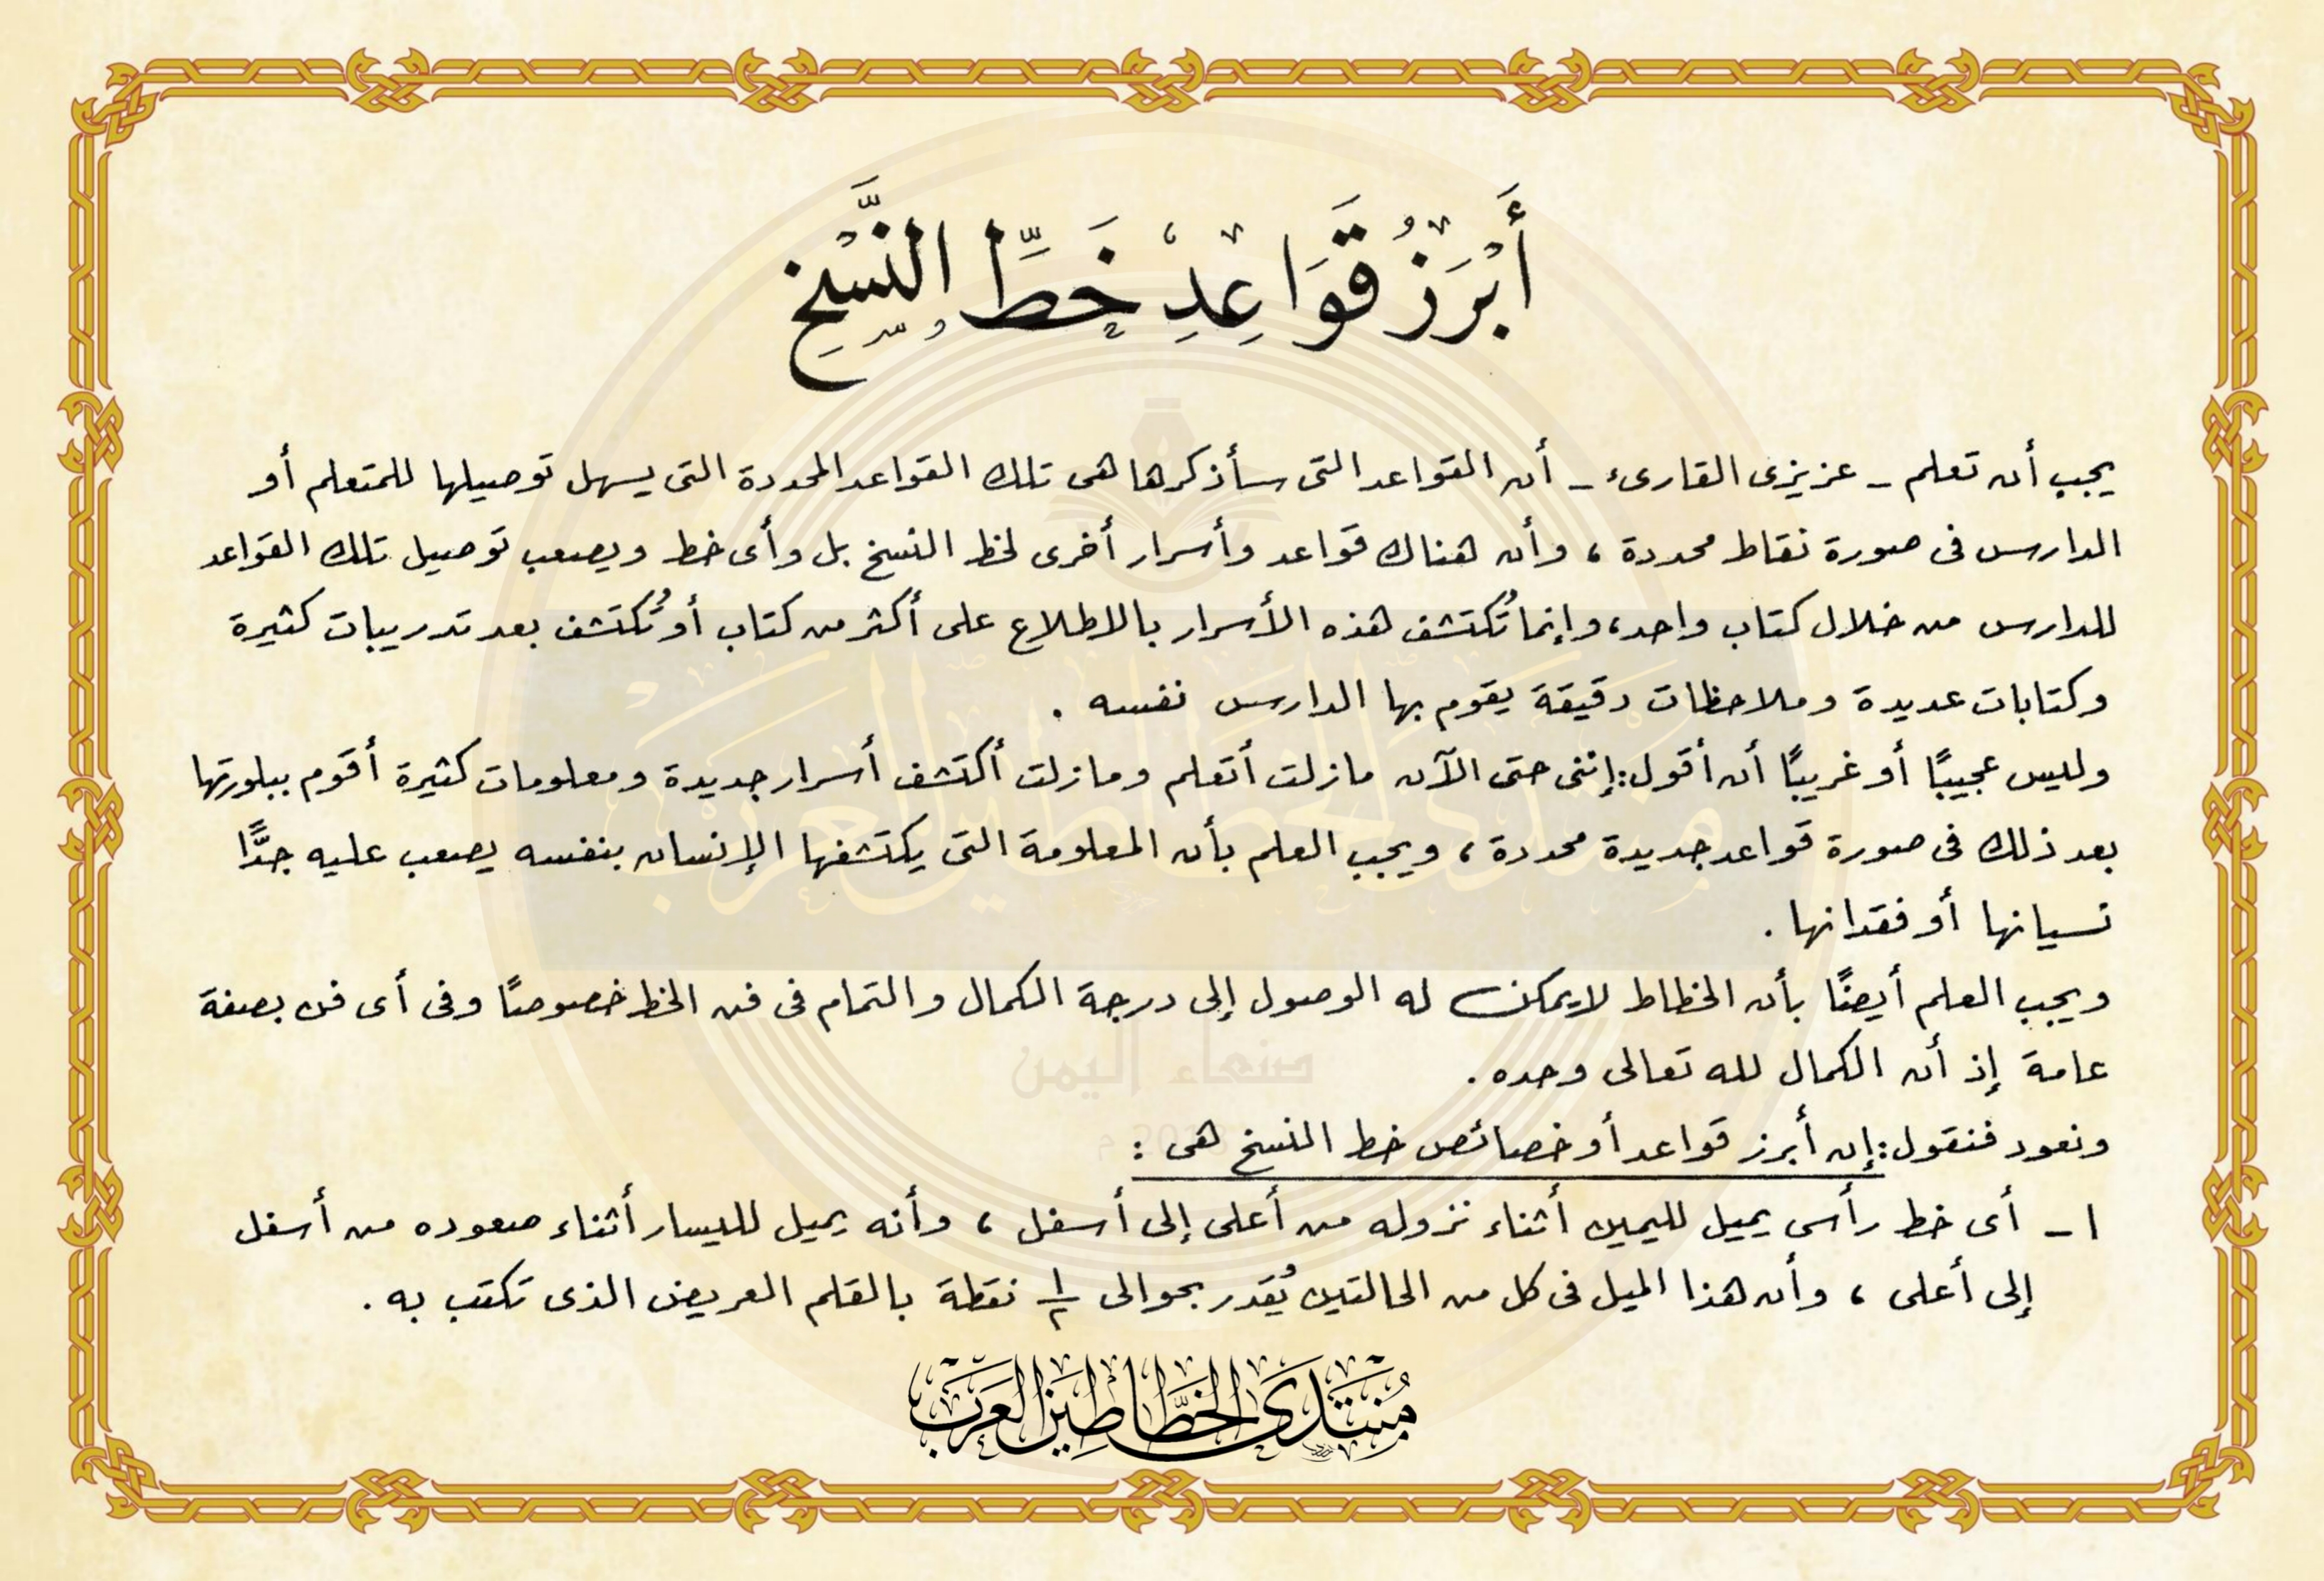 أَبْرَزُ قَوَاعِدِ خَطِّ النَّسْخِ
يجب أن تعلم - عزيزى القارىء - أن القواعد التى سأذكرها هى تلك القواعد المحددة التى يسهل توصيلها للمتعلم أو
الدارس فى صورة نقاط محددة ، وأن هناك قواعد وأسرار أخرى لخط النسخ بل وأى خط ويصعب توصيل تلك القواعد
للدارس من خلال كتاب واحد، وإنما تُكتشف هذه الأسرار بالاطلاع على أكثر من كتاب أو تُكتشف بعد تدريبات كثيرة
وكتابات عديدة وملاحظات دقيقة يقوم بها الدارس نفسه .
وليس عجيبًا أو غريبًا أن أقول : إننى حتى الآن مازلت أتعلم ومازلت أكتشف أسرار جديدة ومعلومات كثيرة أقوم ببلورتها
بعد ذلك فى صورة قواعد جديدة محددة ، ويجب العلم بأن المعلومة التى يكتشفها الإنسان بنفسه يصعب عليه جدًّا
نسيانها أو فقدانها .
ويجب العلم أيضًا بأن الخطاط لايمكن له الوصول إلى درجة الكمال والتمام فى فن الخط خصوصًا وفى أى فن بصفة
عامة إذ أن الكمال لله تعالى وحده .
صنعاء اليمن
ونعود فنقول : إن أبرز قواعد أو خصائص خط النسخ هى :
١- أى خط رأسى يميل لليمين أثناء نزوله من أعلى إلى أسفل ، وأنه يميل لليسار أثناء صعوده من أسفل
إلى أعلى ، وأن هذا الميل فى كل من الحالتين يُقدر بحوالى ١/٢ نقطة بالقلم العريض الذى تكتب به .
مُنتَدَى الخَطَّاطِينَ العَرَب